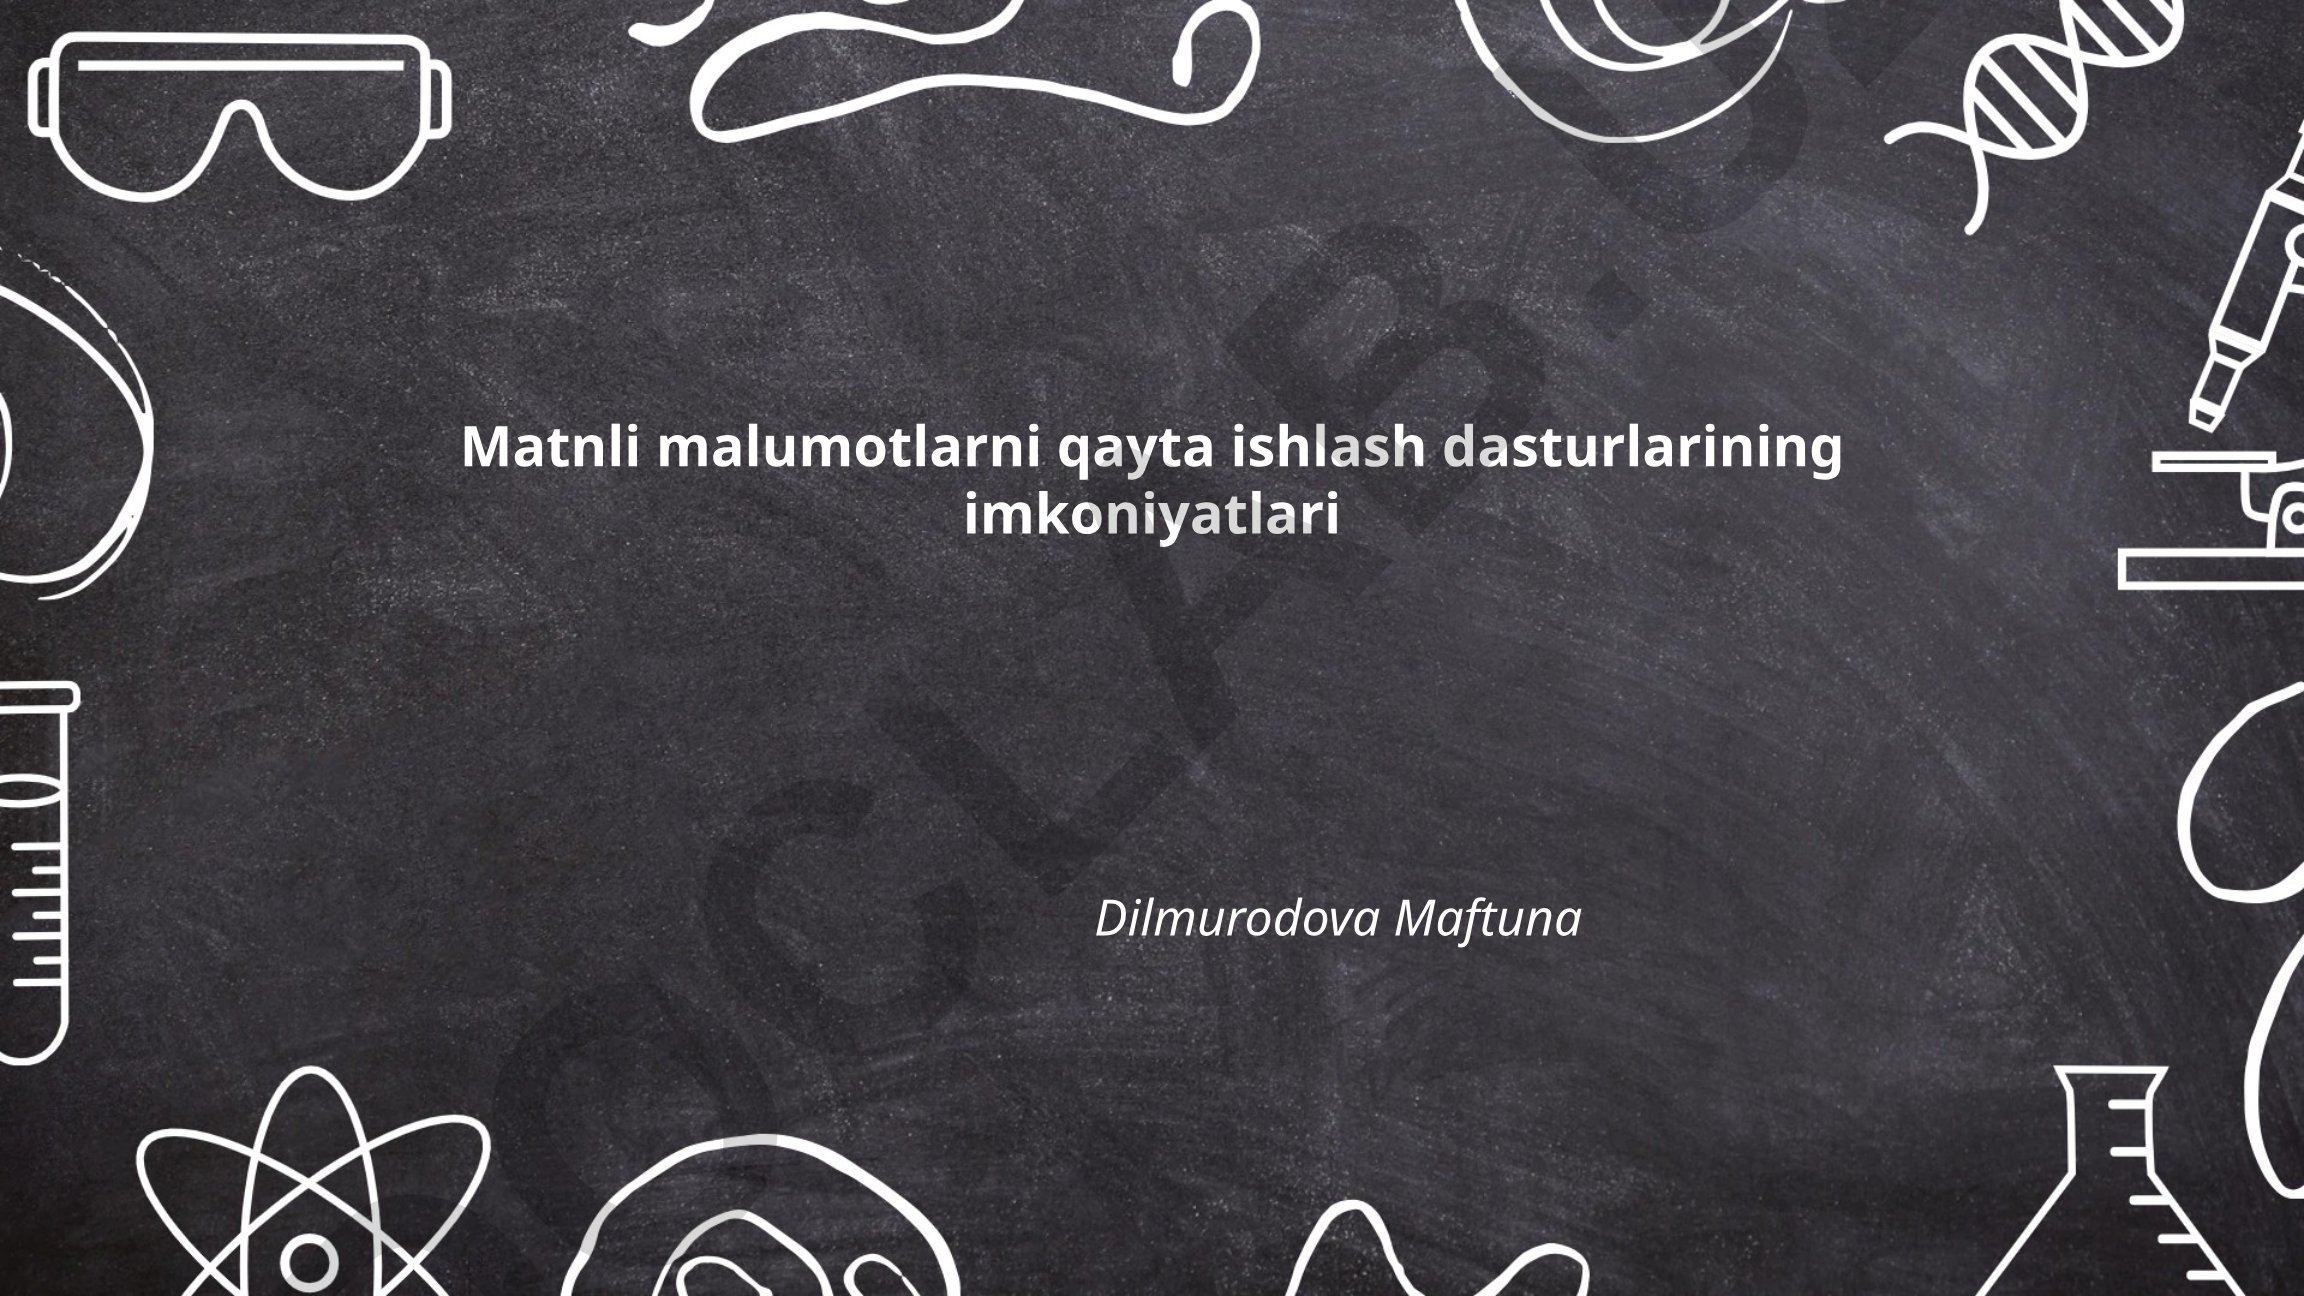 Matnli malumotlarni qayta ishlash dasturlarining
imkoniyatlari
Dilmurodova Maftuna